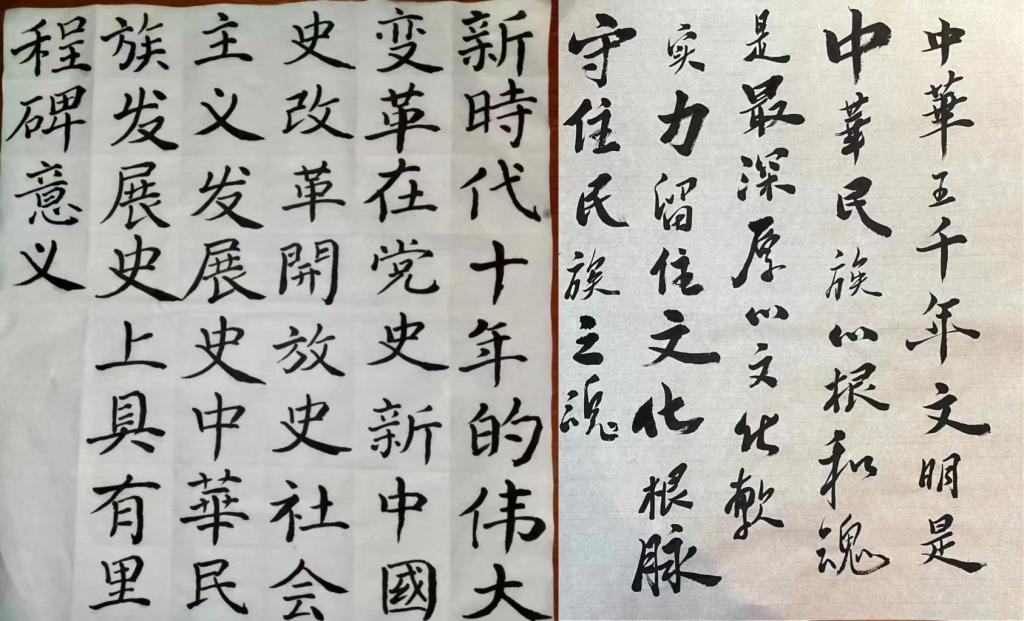 新時代十年的伟大
变革在党史新中國
史改革開放史社会
主义发展史中華民
族发展史上具有里
程碑意义
中華五千年文明是
中華民族的根和魂
是最深厚的文化軟
实力留住文化根脉
守住民族之魂